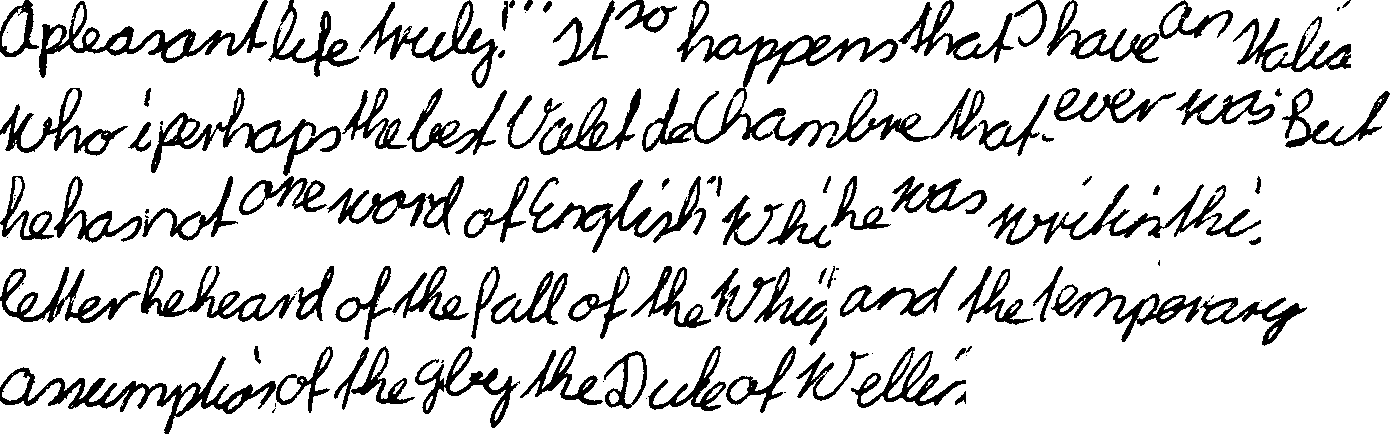 A pleasant life truly!''' It so happens that I have an Italia
who i perhaps the best Valet de Chambre that ever was But
he has not one word of English" Whi he was writin thi
letter he heard of the fall of the Whig and the temporary
assumption of the by the Duke of Wellin